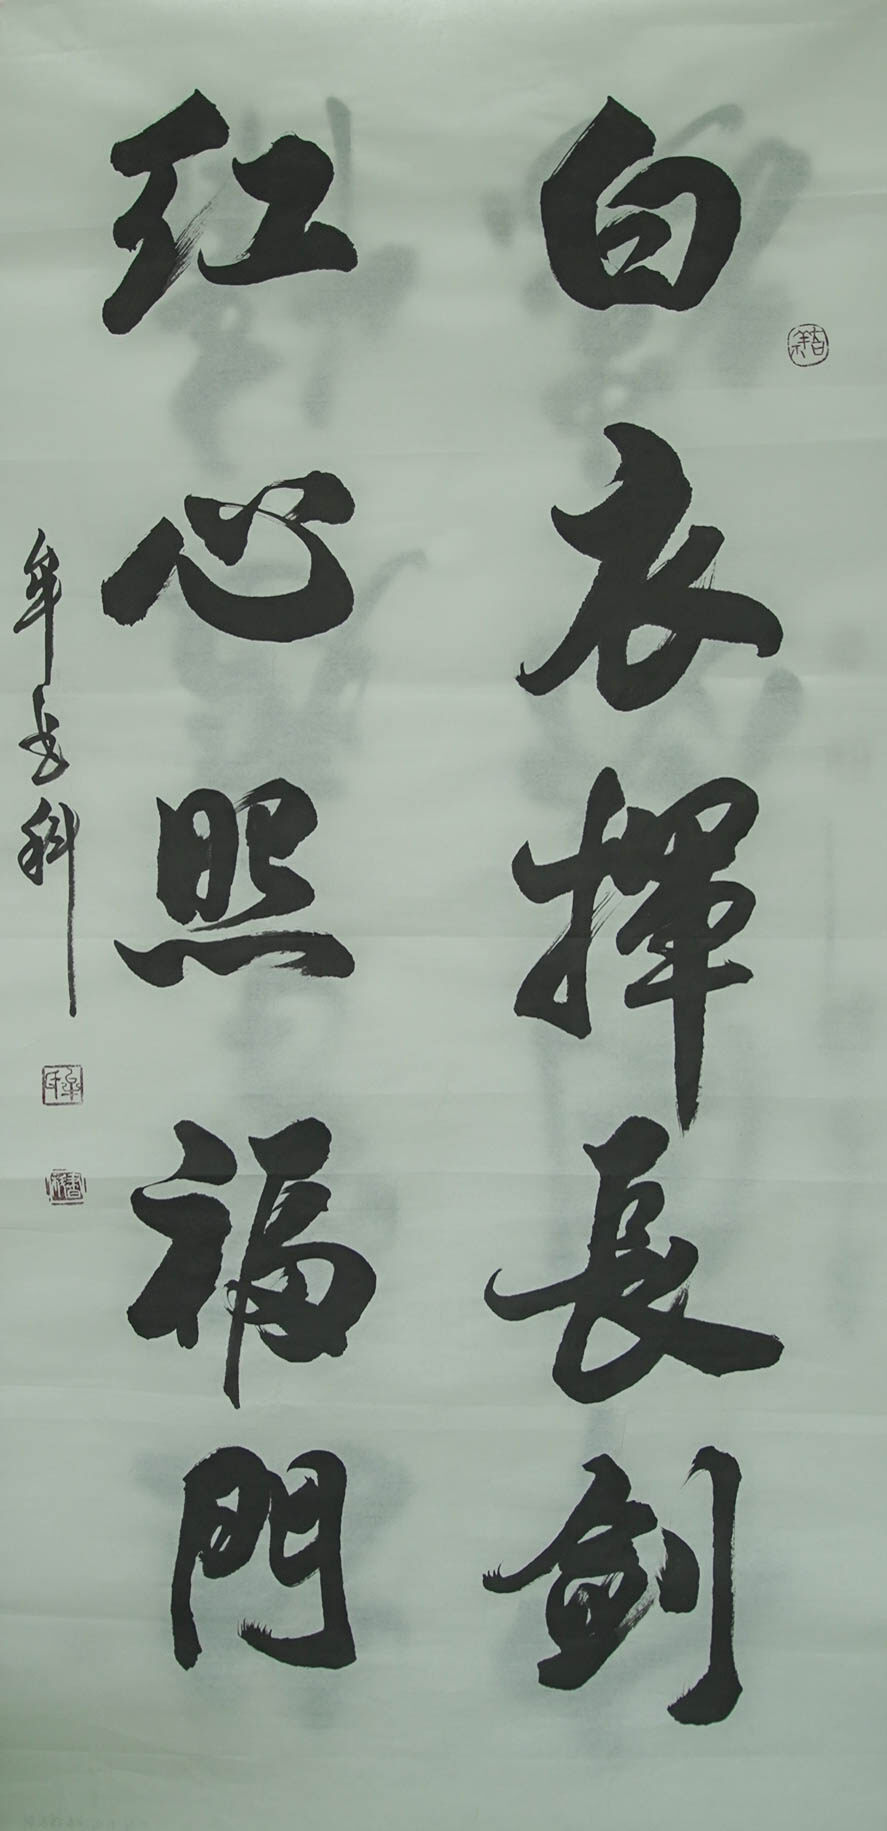 白衣揮長劍
红心照福門
牟書科